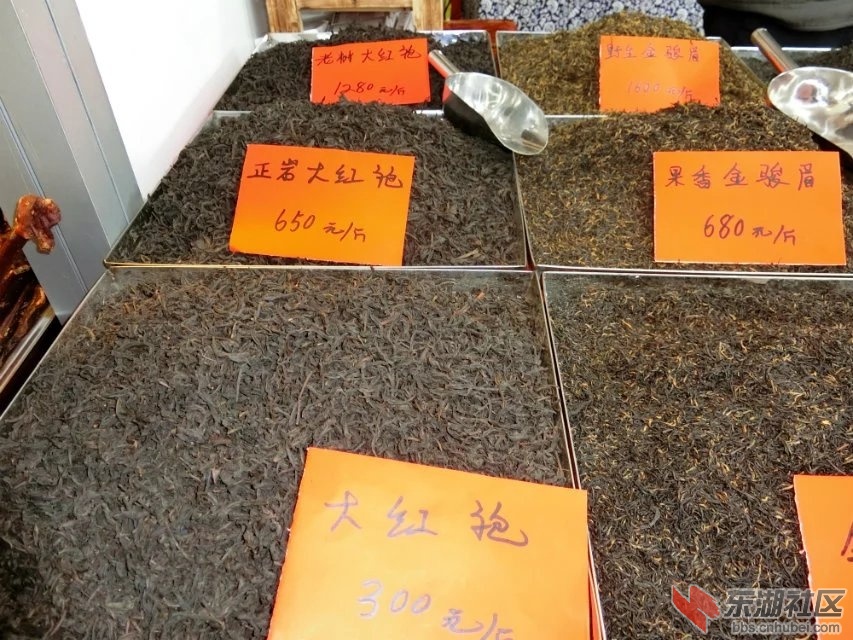 老树大红袍
1280元/斤
野生金骏眉
1600元/斤
正岩大红袍
650元/斤
果香金骏眉
680元/斤
大红袍
300元/斤
东湖社区
bbs.cnhubei.com